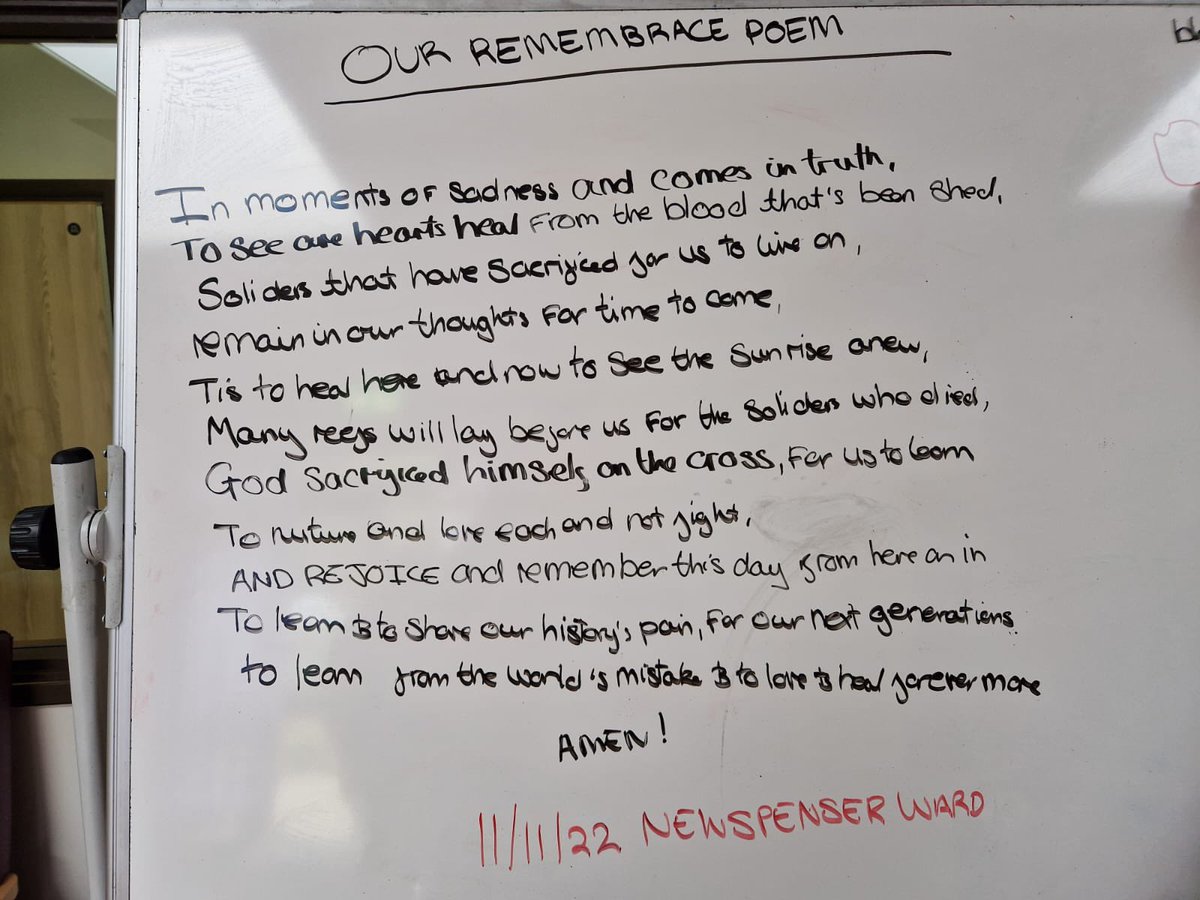 OUR REMEMBRACE POEM
In moments of sadness and comes in truth,
To see are hearts heal from the blood that's been shed,
Soliders that have sacrificed for us to live on,
remain in our thoughts for time to come,
Tis to heal here and now to see the sunrise anew,
Many reefs will lay before us for the soliders who died,
God sacrificed himself on the cross, for us to learn
To nuture and love each and not fight,
AND REJOICE and remember this day from here on in
To learn & to share our history's pain, for our next generations
to learn from the world's mistake & to love & heal forever more
AMEN!
11/11/22 NEWSPENSER WARD